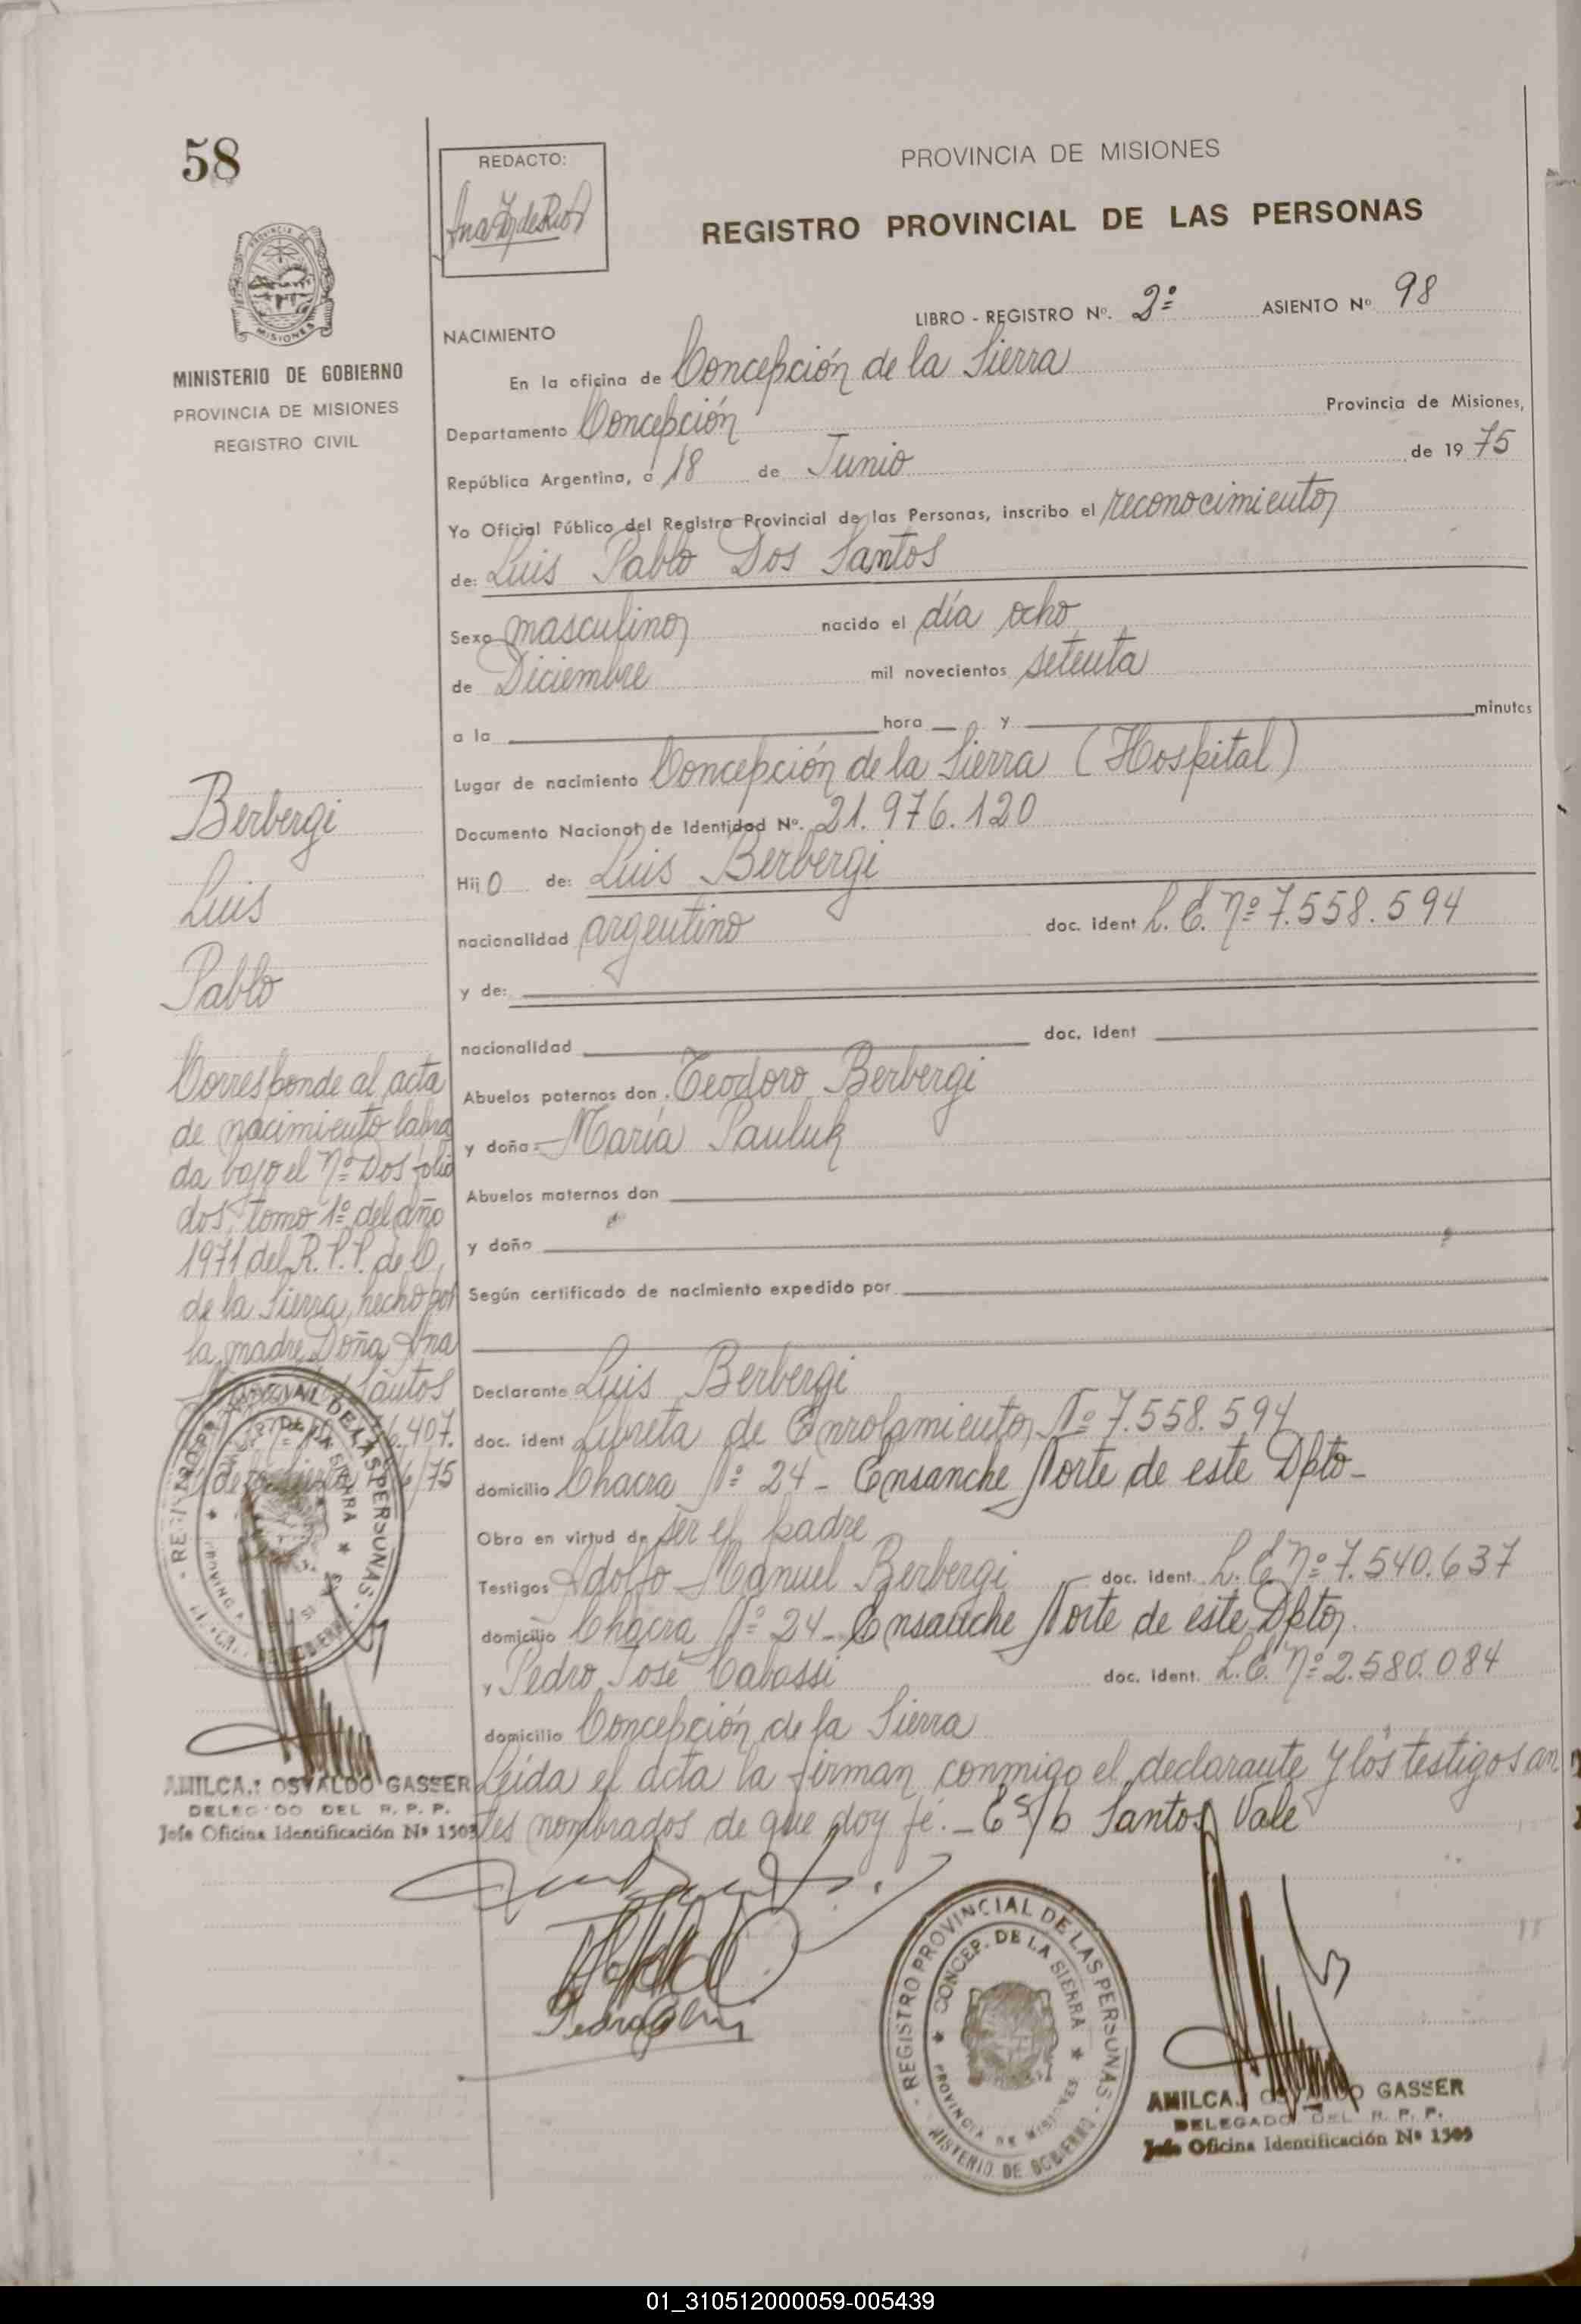 58
REDACTO:
PROVINCIA DE MISIONES
REGISTRO PROVINCIAL DE LAS PERSONAS
MINISTERIO DE GOBIERNO
PROVINCIA DE MISIONES
REGISTRO CIVIL
LIBRO - REGISTRO Nº. 2º ASIENTO Nº 98
NACIMIENTO
En la oficina de Concepción de la Sierra
Departamento Concepción Provincia de Misiones,
República Argentina, a 18 de Junio de 1975
Yo Oficial Público del Registro Provincial de las Personas, inscribo el reconocimiento
de: Luis Pablo Dos Santos
Sexo masculino nacido el día ocho
de Diciembre mil novecientos setenta
a la hora y minutos
Lugar de nacimiento Concepción de la Sierra (Hospital)
Documento Nacional de Identidad Nº. 21.976.120
Hijo de: Luis Berbergi
nacionalidad argentino doc. ident L. E. Nº 7.558.594
y de:
nacionalidad doc. ident
Abuelos paternos don Teodoro Berbergi
y doña María Pauluk
Abuelos maternos don
y doña
Según certificado de nacimiento expedido por
Declarante Luis Berbergi
doc. ident Libreta de Enrolamiento Nº 7.558.594
domicilio Chacra Nº 24 - Ensanche Norte de este Dpto-
Obra en virtud de ser el padre
Testigos Adolfo Manuel Berbergi doc. ident. L. E. Nº 7.540.637
domicilio Chacra Nº 24 - Ensanche Norte de este Dpto
y Pedro José Cabassi doc. ident. L. E. Nº 2.580.084
domicilio Concepción de la Sierra
Leída el acta la firman conmigo el declarante y los testigos an
tes nombrados de que doy fé. - Es/b Santos Vale
Berbergi
Luis
Pablo
Corresponde al acta
de nacimiento labra
da bajo el Nº Dos folio
dos, tomo 1º del año
1971 del R. P. P. de C.
de la Sierra, hecho por
la madre Doña Ana
Santos
6.407.
/75
OSVALDO GASSER
DELEGADO DEL R. P. P.
Jefe Oficina Identificación Nº 1505
REGISTRO PROVINCIAL DE LAS PERSONAS
CONCEP. DE LA SIERRA
PROVINCIA DE MISIONES
MINISTERIO DE GOBIERNO
GASSER
DELEGADO DEL R. P. P.
Jefe Oficina Identificación Nº 1505
01_310512000059-005439